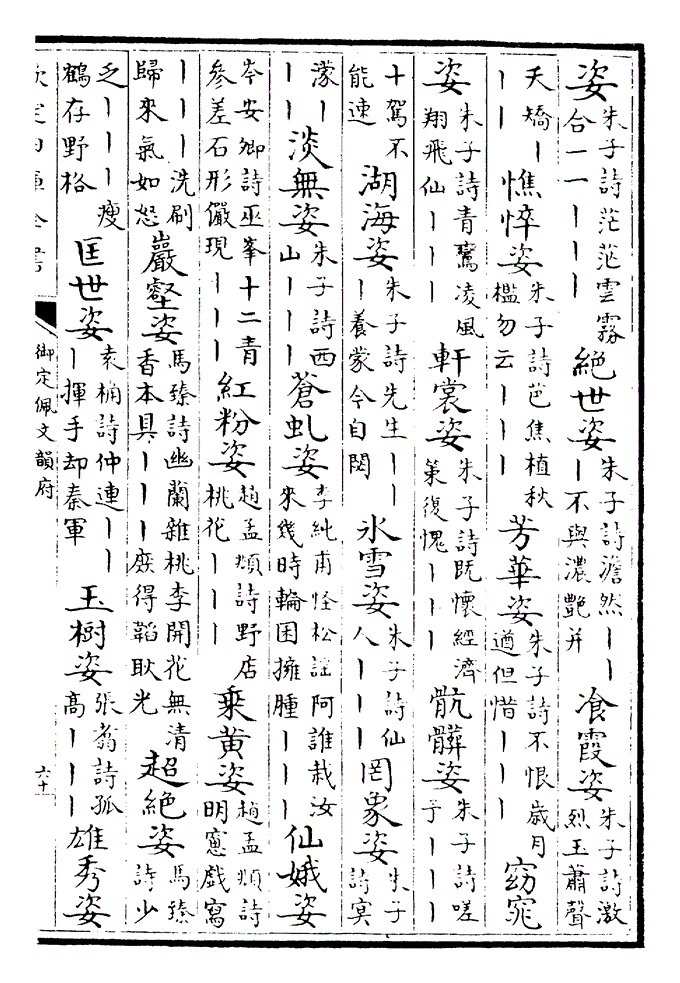 姿朱子詩茫茫雲霧合一一｜｜｜絶世姿朱子詩澹然｜｜｜不與濃艷并飡霞姿朱子詩激烈玉簫聲
夭矯｜｜｜憔悴姿朱子詩芭焦植秋檻勿云｜｜｜芳華姿朱子詩不恨歲月遒但惜｜｜｜窈窕
姿朱子詩青鸞凌風翔飛仙｜｜｜軒裳姿朱子詩既懷經濟策復愧｜｜｜骯髒姿朱子詩嗟子｜｜｜
十駕不能速湖海姿朱子詩先生｜｜｜養蒙今自閟氷雪姿朱子詩仙人｜｜｜罔象姿朱子詩㝠
濛｜｜｜淡無姿朱子詩西山｜｜｜蒼虬姿李純甫怪松謡阿誰栽汝來幾時輪囷擁腫｜｜｜仙娥姿
岑安卿詩巫峯十二青參差石形儼現｜｜｜紅粉姿趙孟頫詩野店桃花｜｜｜乘黄姿趙孟頫詩明窻戲寫
｜｜｜洗刷歸來氣如怒巖壑姿馬臻詩幽蘭雜桃李開花無清香本具｜｜｜庶得韜耿光超絶姿馬臻詩少
乏｜｜｜瘦鶴存野格匡世姿袁桷詩仲連｜｜｜揮手却秦軍玉樹姿張翥詩孤高｜｜｜雄秀姿
欽定四庫全書
御定佩文韻府
六十